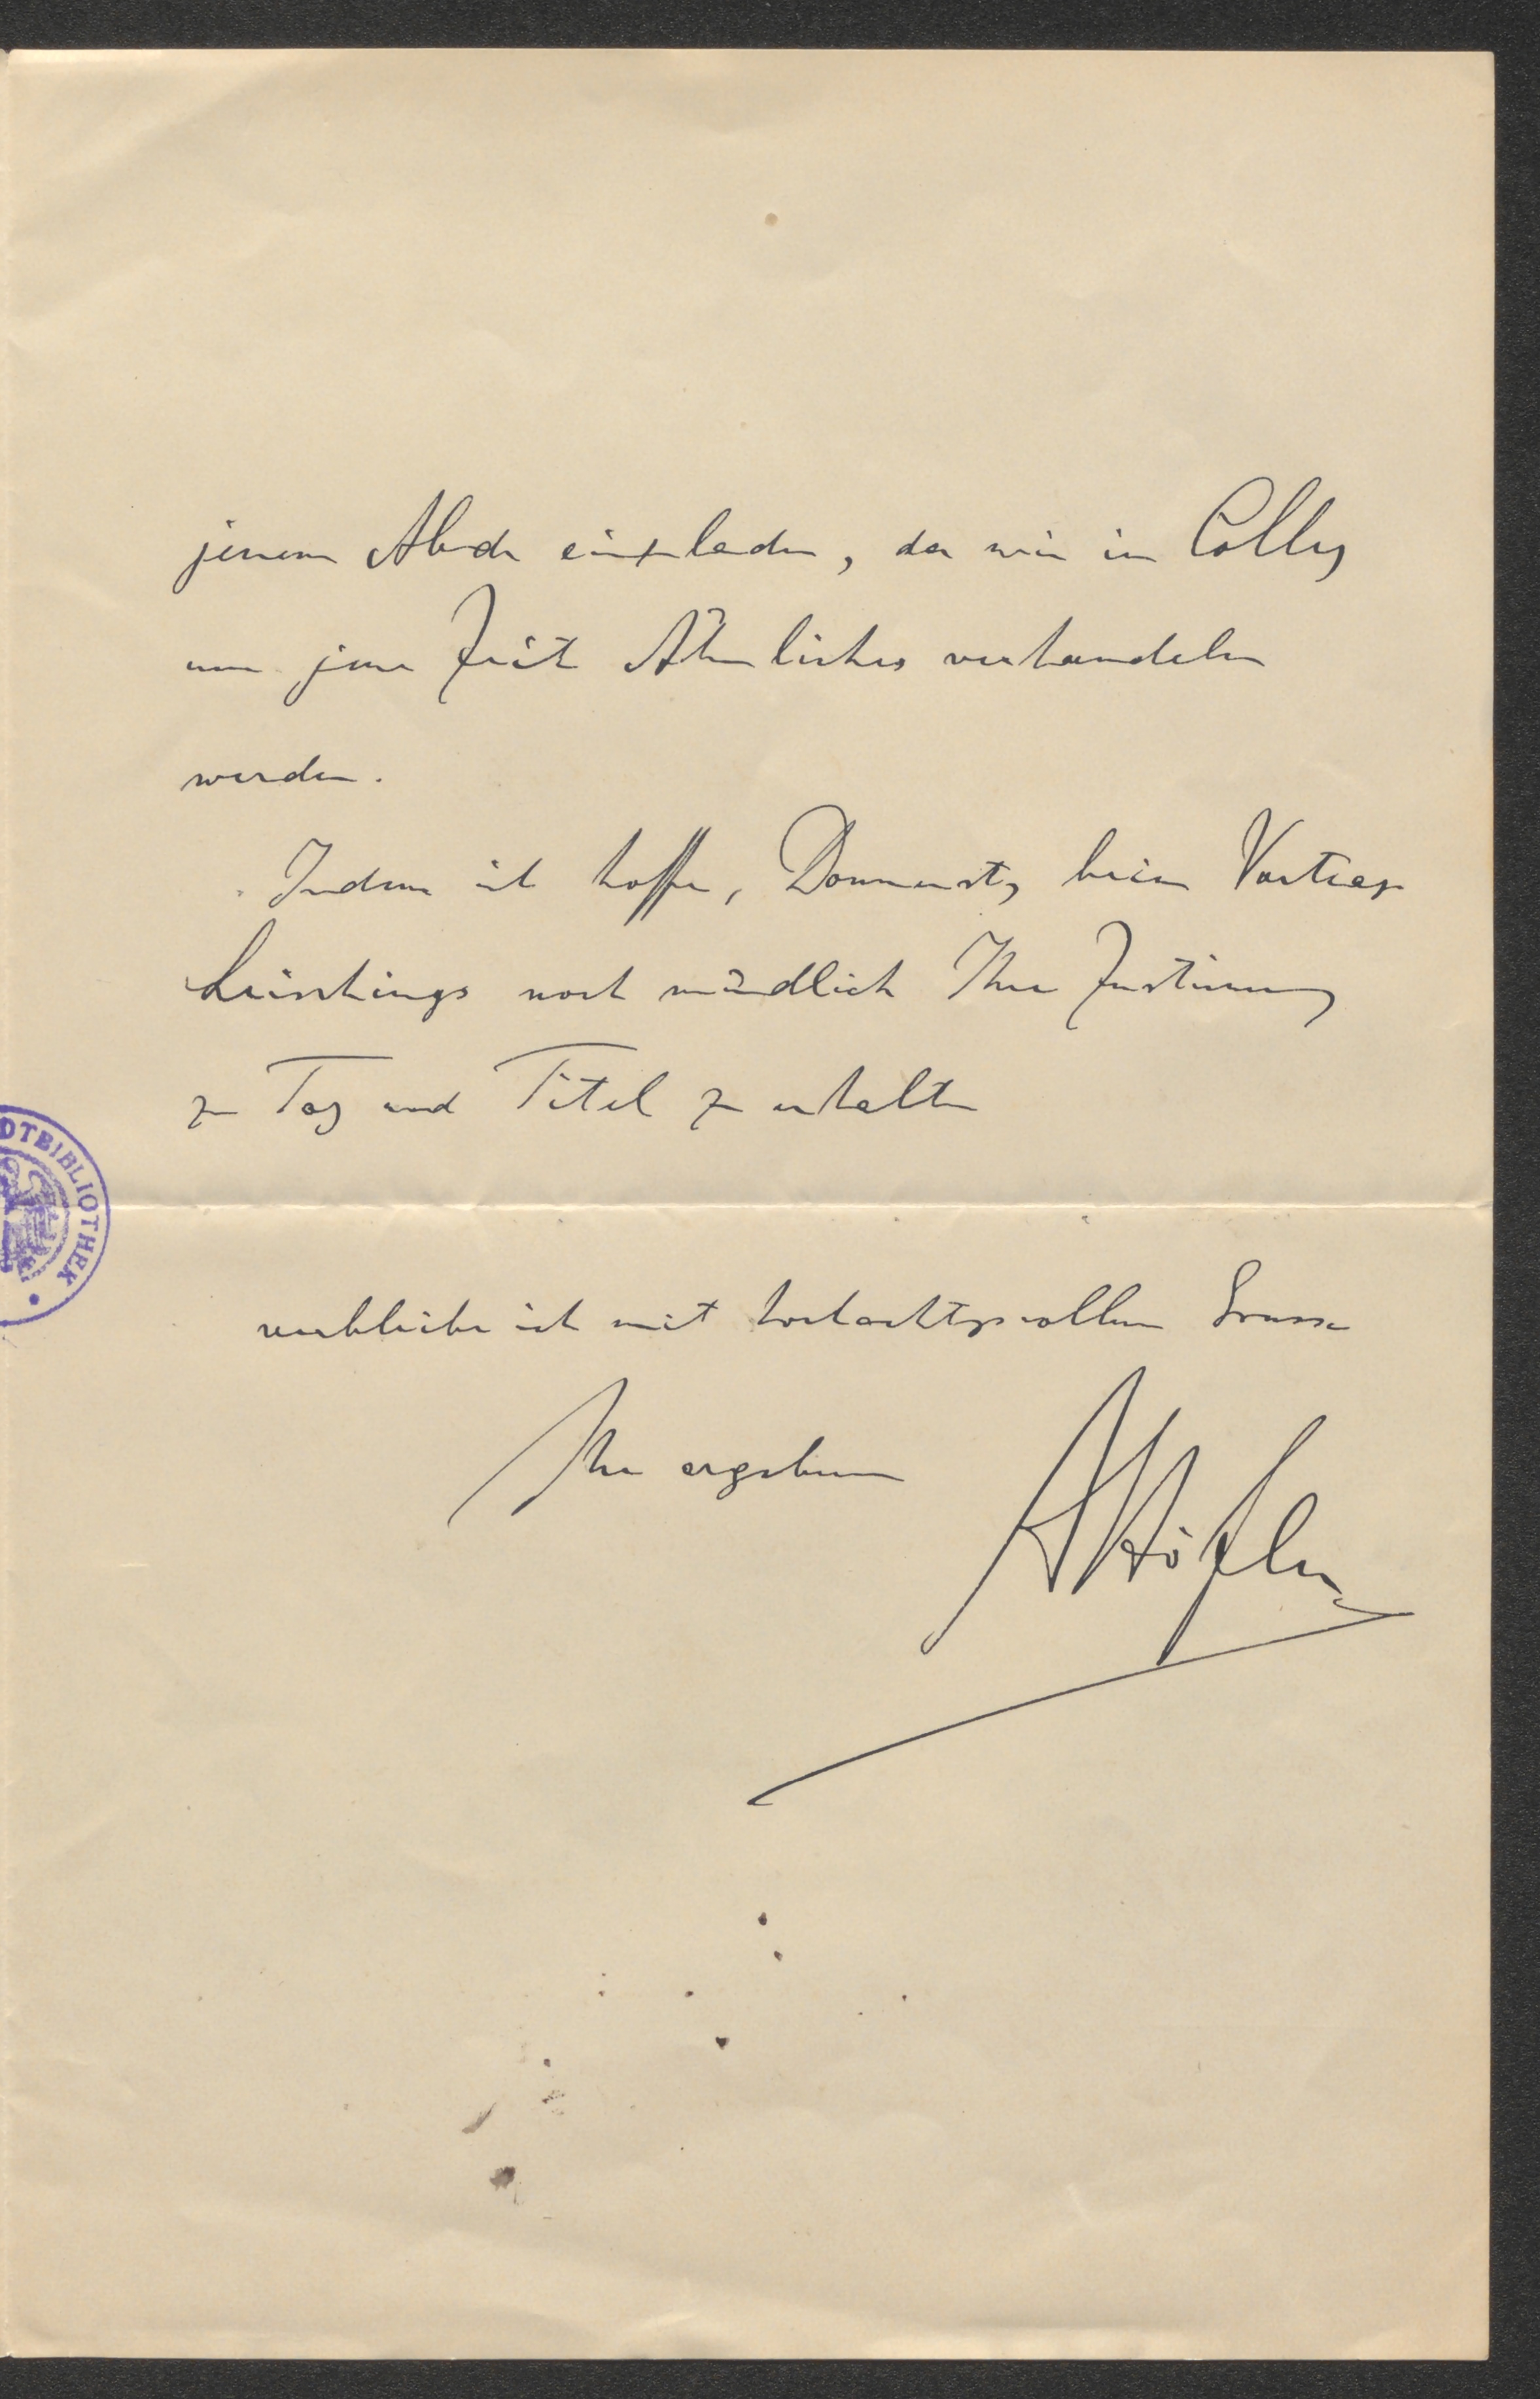 jenem Abende einzuladen, da wir im Colleg
um jene Zeit Ähnliches verhandeln
werden.
Indem ich hoffe, Donnerstg beim Vortrage
Leischings noch mündlich Ihre Zustimmung
zu Tag und Titel zu erhalten
DTBIBLIOTHEK
verbleibe ich mit hochachtungsvollem Grusse
Ihr ergebener
AHöfler